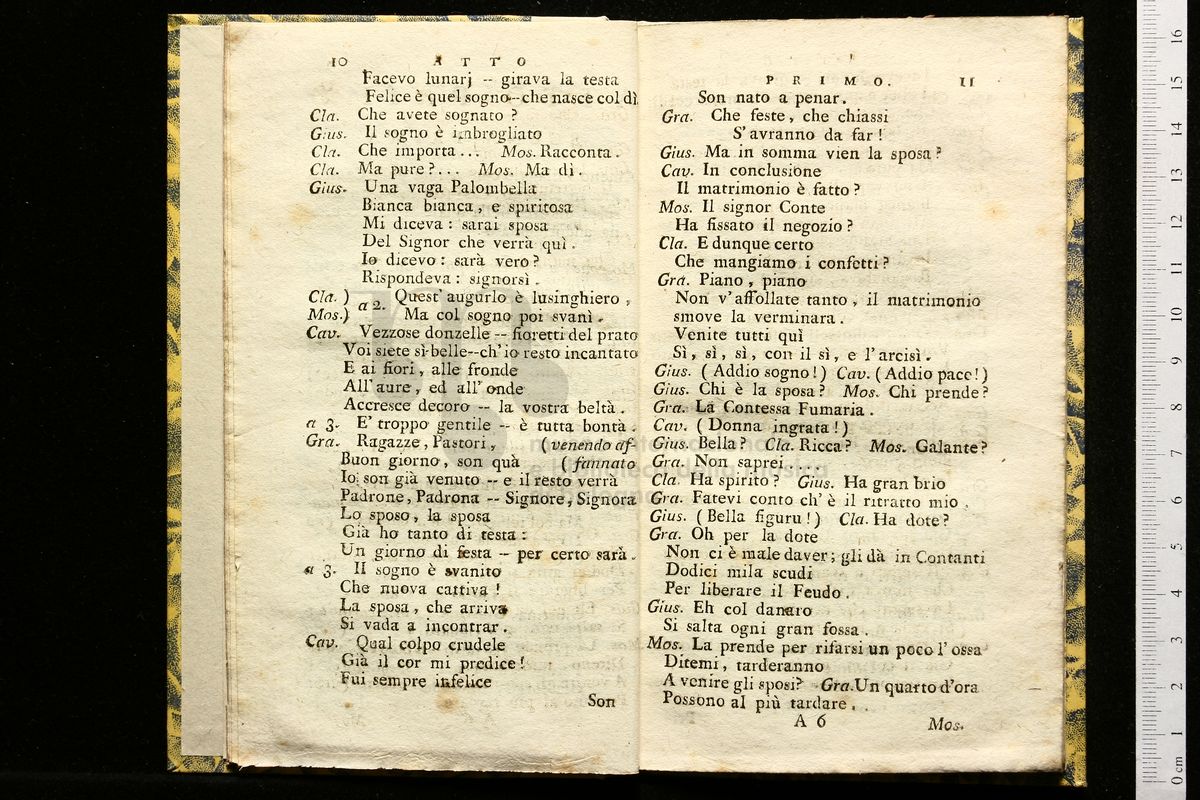 10 ATTO
Facevo lunarj -- girava la testa
Felice è quel sogno -- che nasce col dì.
Cla. Che avete sognato ?
Gius. Il sogno è imbrogliato
Cla. Che importa... Mos. Racconta.
Cla. Ma pure ?... Mos. Ma dì.
Gius. Una vaga Palombella
Bianca bianca, e spiritosa
Mi diceva : sarai sposa
Del Signor che verrà quì.
Io dicevo : sarà vero ?
Rispondeva : signorsì.
Cla. ) a 2. Quest' augurlo è lusinghiero,
Mos.) Ma col sogno poi svanì.
Cav. Vezzose donzelle -- fioretti del prato
Voi siete sì belle -- ch' io resto incantato
E ai fiori, alle fronde
All' aure, ed all' onde
Accresce decoro -- la vostra beltà.
a 3. E' troppo gentile -- è tutta bontà.
Gra. Ragazze, Pastori, (venendo af-
Buon giorno, son quà (fannato
Io son già venuto -- e il resto verrà
Padrone, Padrona -- Signore, Signora
Lo sposo, la sposa
Già ho tanto di testa :
Un giorno di festa -- per certo sarà.
a 3. Il sogno è svanito
Che nuova cattiva !
La sposa, che arriva
Si vada a incontrar.
Cav. Qual colpo crudele
Già il cor mi predice !
Fui sempre infelice
Son
PRIMO. 11
Son nato a penar.
Gra. Che feste, che chiassi
S' avranno da far !
Gius. Ma in somma vien la sposa ?
Cav. In conclusione
Il matrimonio è fatto ?
Mos. Il signor Conte
Ha fissato il negozio ?
Cla. E dunque certo
Che mangiamo i confetti ?
Gra. Piano, piano
Non v' affollate tanto, il matrimonio
smove la verminara.
Venite tutti quì
Sì, sì, sì, con il sì, e l' arcisì.
Gius. (Addio sogno !) Cav. (Addio pace !)
Gius. Chi è la sposa ? Mos. Chi prende ?
Gra. La Contessa Fumaria.
Cav. (Donna ingrata !)
Gius. Bella ? Cla. Ricca ? Mos. Galante ?
Gra. Non saprei....
Cla. Ha spirito ? Gius. Ha gran brio
Gra. Fatevi conto ch' è il ritratto mio.
Gius. (Bella figuru !) Cla. Ha dote ?
Gra. Oh per la dote
Non ci è male daver; gli dà in Contanti
Dodici mila scudi
Per liberare il Feudo.
Gius. Eh col danaro
Si salta ogni gran fossa.
Mos. La prende per rifarsi un poco l' ossa
Ditemi, tarderanno
A venire gli sposi ? Gra. Un quarto d'ora
Possono al più tardare.
A 6 Mos.
0 cm 1 2 3 4 5 6 7 8 9 10 11 12 13 14 15 16